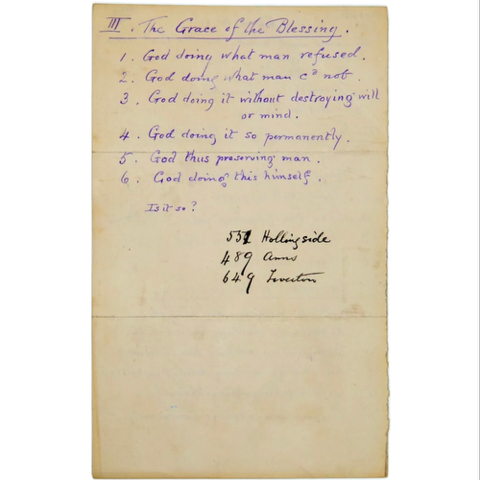 III. The Grace of the Blessing.
1. God doing what man refused.
2. God doing what man cd not.
3. God doing it without destroying will
or mind.
4. God doing it so permanently.
5. God thus preserving man.
6. God doing this himself.
Is it so?
551 Hollingside
489 Anns
649 Tiverton